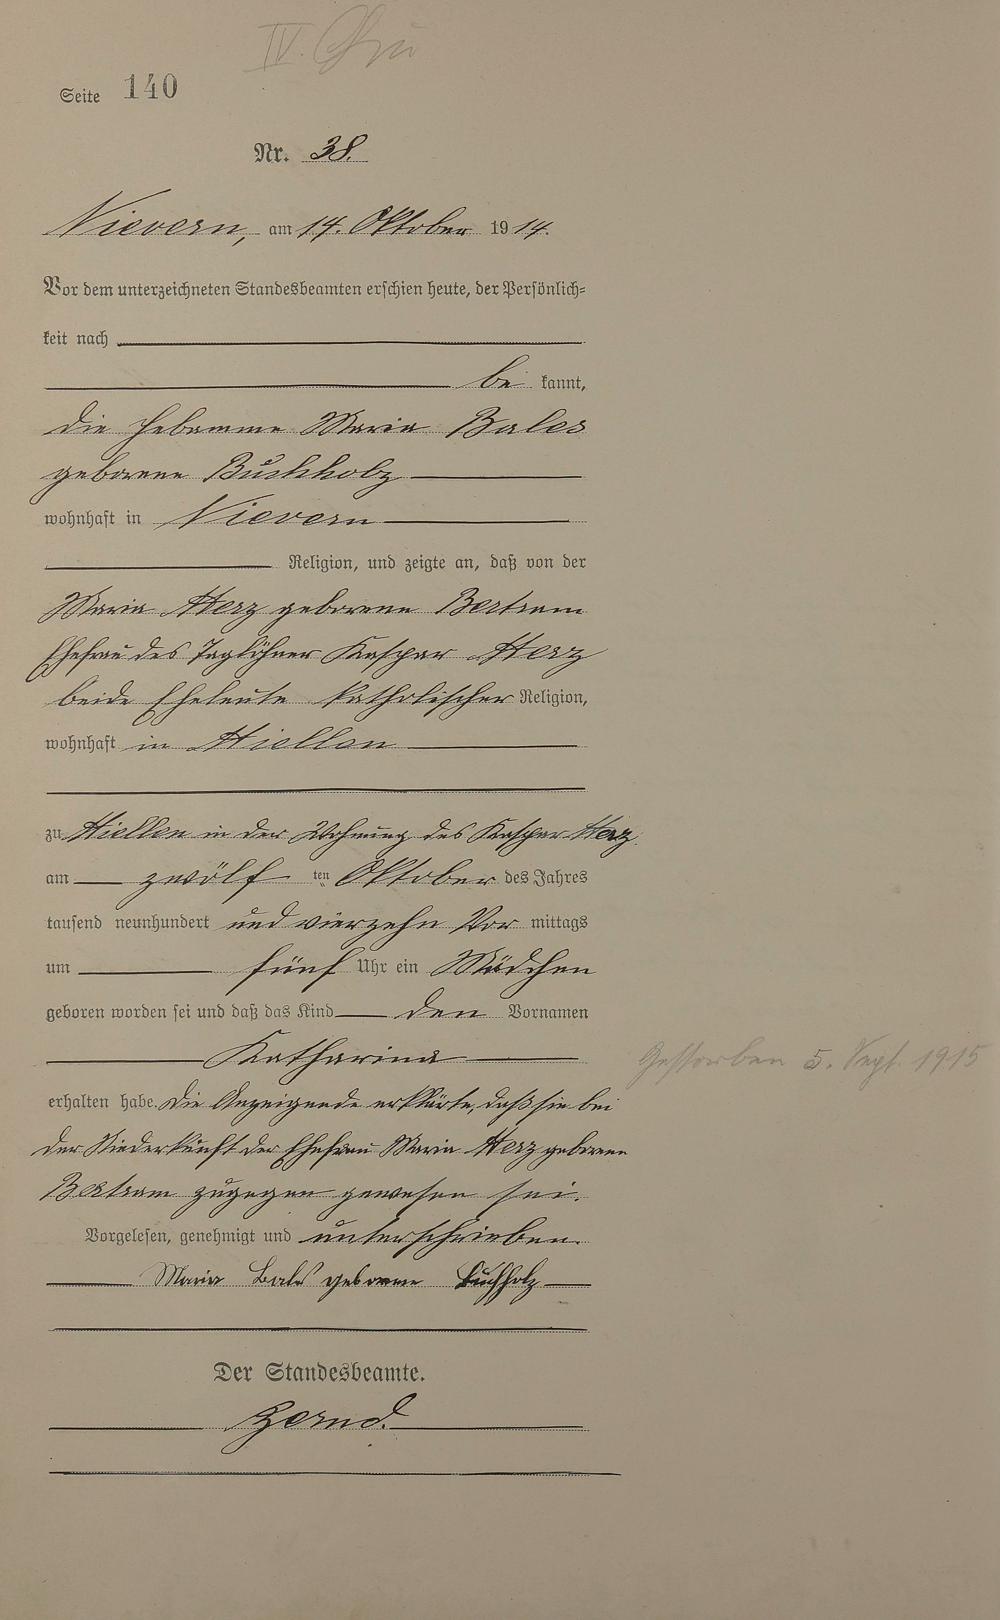 IV.
Seite 140
Nr. 38.
Nievern, am 14. Oktober 1914.
Vor dem unterzeichneten Standesbeamten erschien heute, der Persönlich-
keit nach
be kannt,
die Hebamme Maria Bales
geborene Buchholz
wohnhaft in Nievern
Religion, und zeigte an, daß von der
Maria Herz geborene Bertram
Ehefrau des Taglöhner Kaspar Herz
beide Eheleute katholischer Religion,
wohnhaft in
zu in der Wohnung des Kaspar Herz
am zwölf ten Oktober des Jahres
tausend neunhundert und vierzehn Vor mittags
um fünf Uhr ein Mädchen
geboren worden sei und daß das Kind den Vornamen
Katharina
Gestorben 5. Sept. 1915
erhalten habe. Die Anzeigende erklärte, daß sie bei
der Niederkunft der Ehefrau Maria Herz geborene
Bertram zugegen gewesen sei.
Vorgelesen, genehmigt und unterschrieben.
Maria Bales geborene Buchholz
Der Standesbeamte.